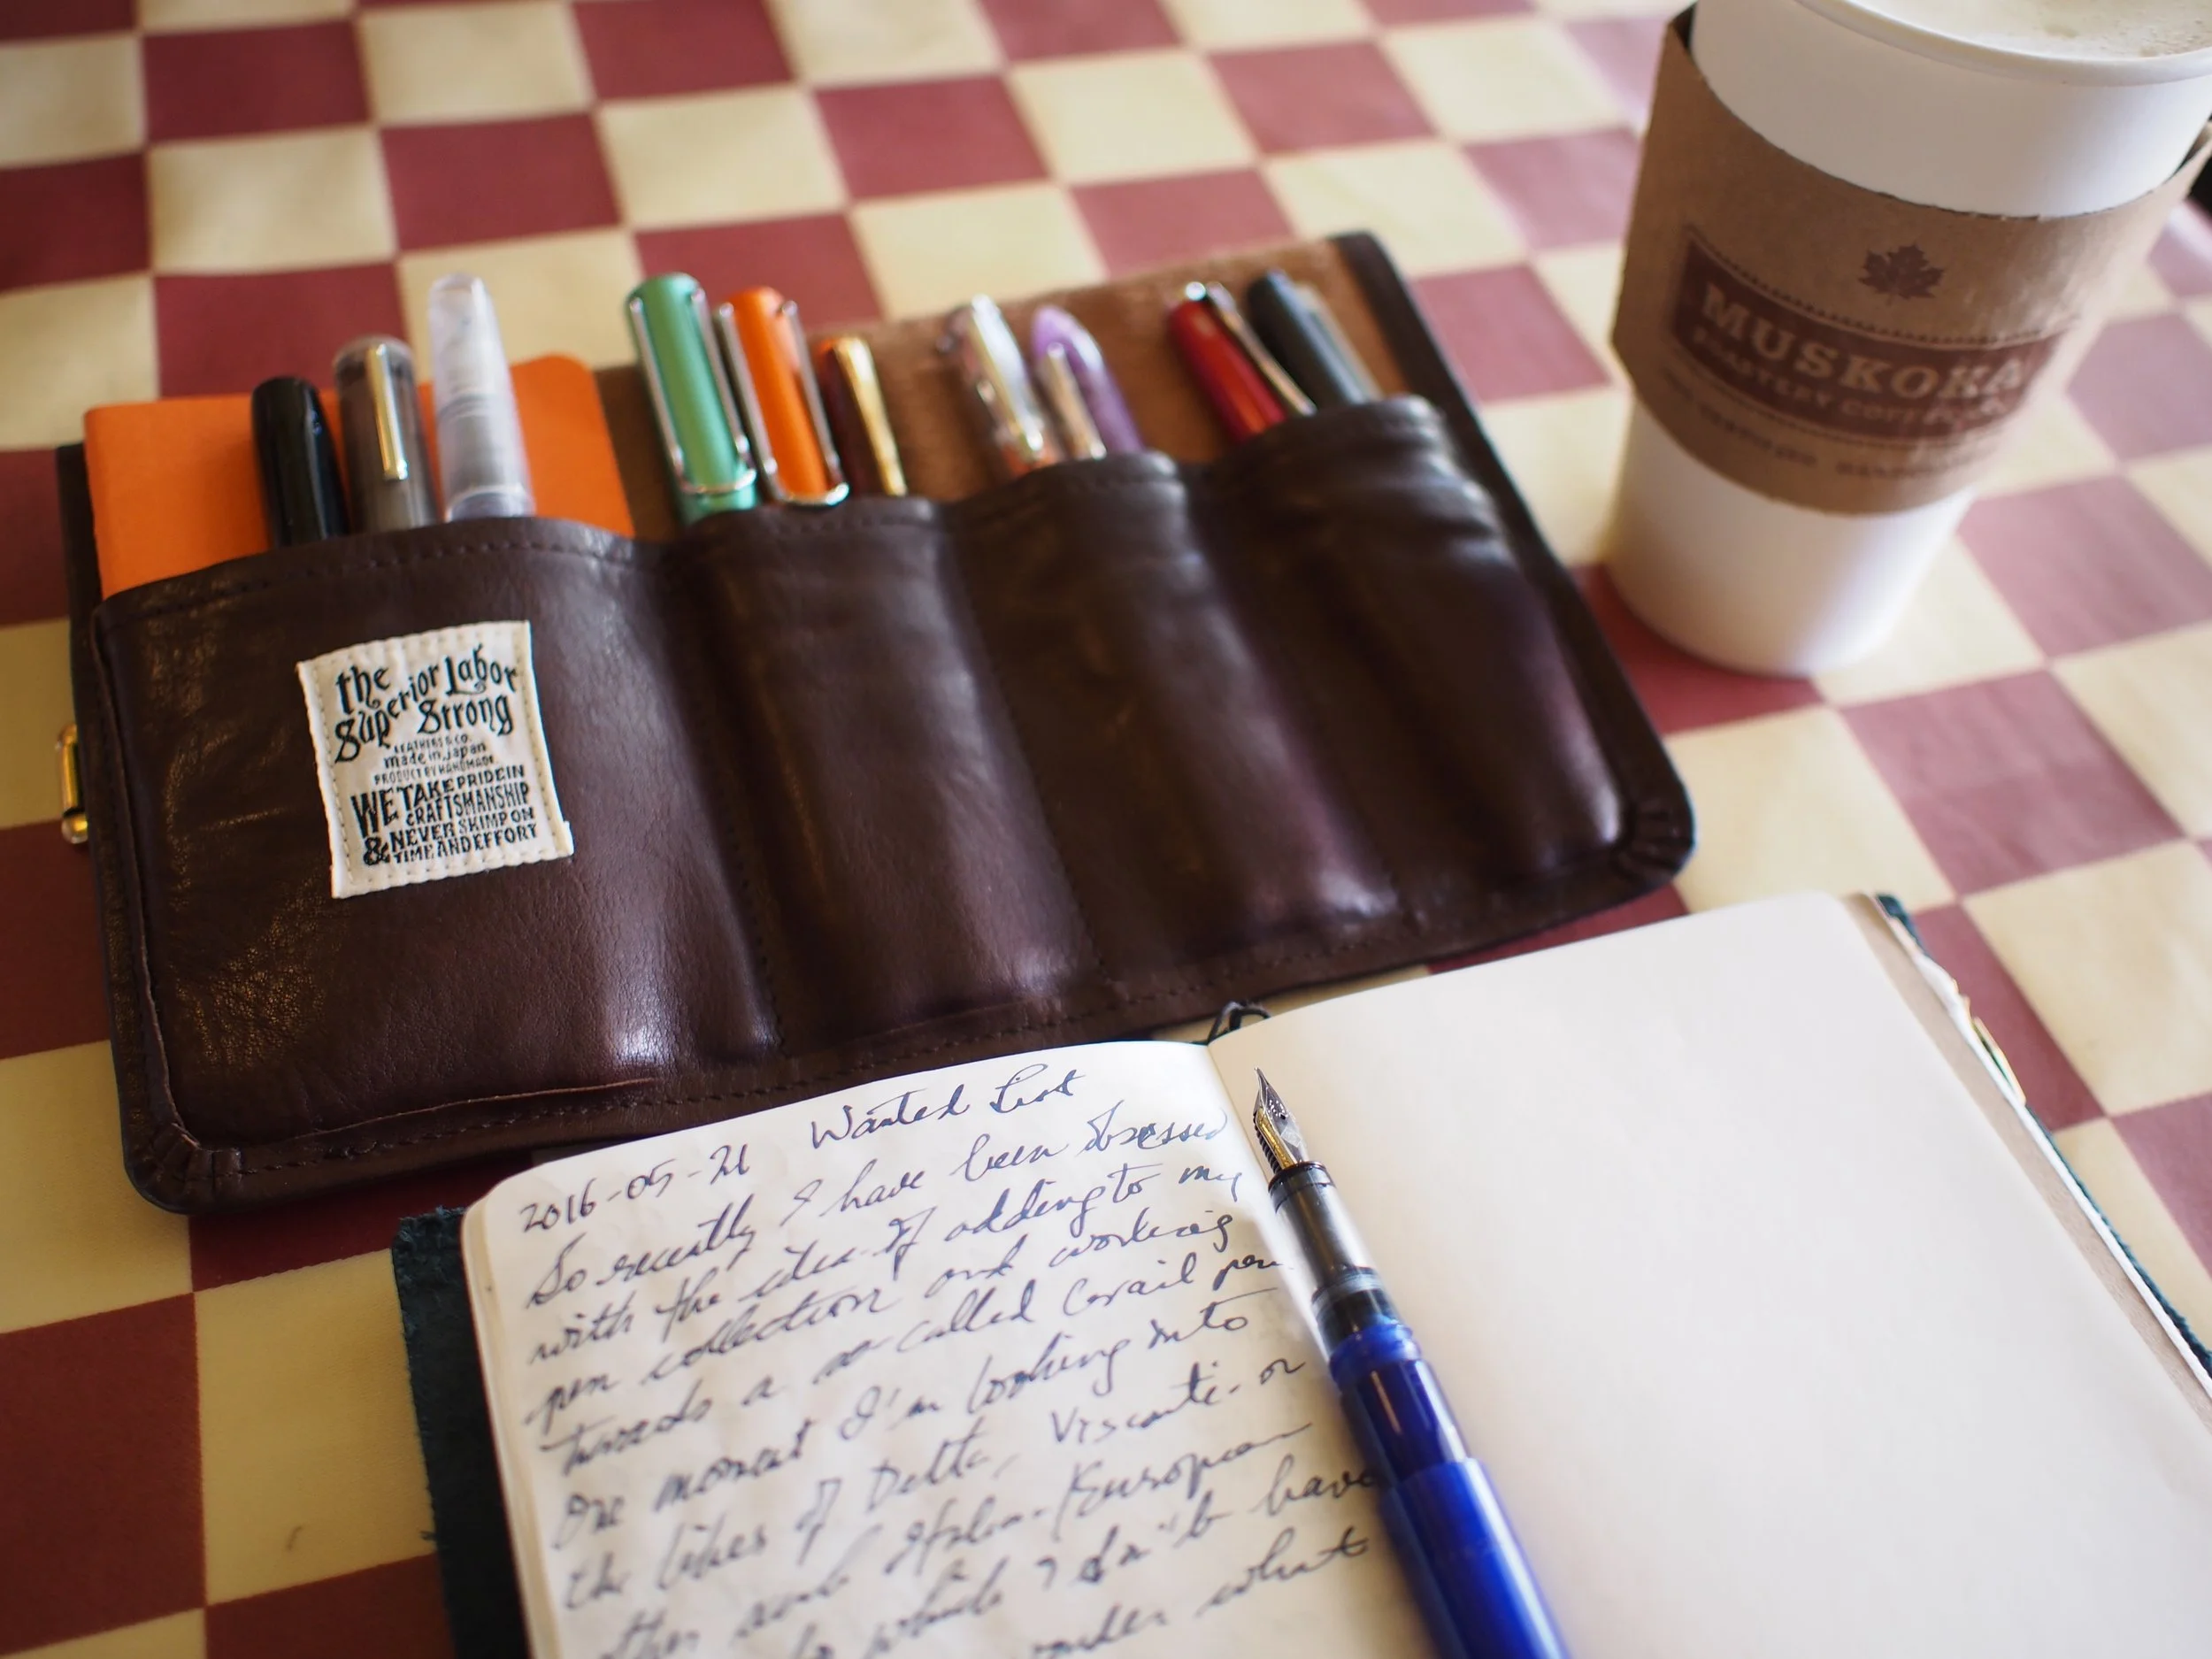 MUSKOKA
ROASTERY COFFEE
the
Superior Labor
Strong
LEATHERS & CO.
made in Japan
PRODUCT BY HANDMADE
WE TAKE PRIDE IN
CRAFTSMANSHIP
& NEVER SKIMP ON
TIME AND EFFORT
2016-05-21 Wanted List
So recently I have been obsessed
with the idea of adding to my
pen collection and working
towards a so called Grail pen.
One moment I'm looking into
the likes of Delta, Visconti or
other such Italian/European
while I don't have
wonder what